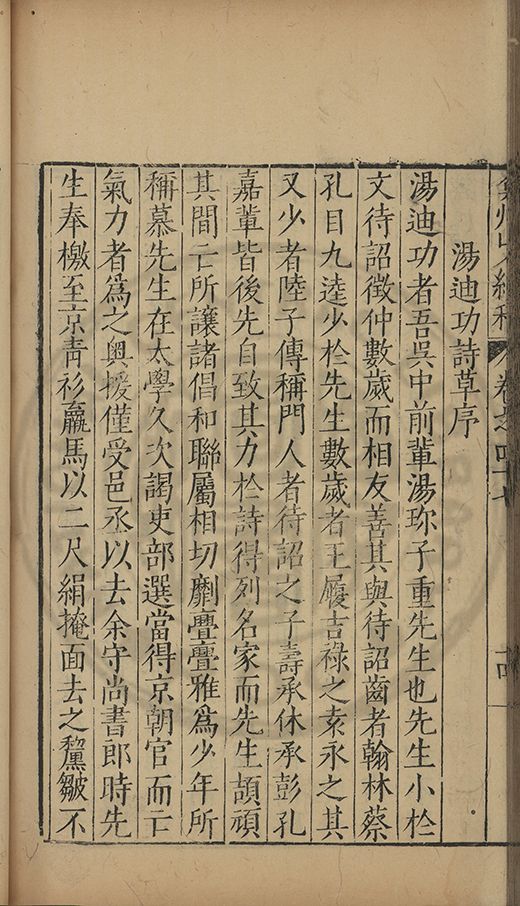 卷之四十七
十四
湯迪功詩草序
湯迪功者吾吳中前輩湯珎子重先生也先生小於
文待詔徵仲數歲而相友善其與待詔齒者翰林蔡
孔目九逵少於先生數歲者王履吉祿之袁永之其
又少者陸子傳稱門人者待詔之子壽承休承彭孔
嘉輩皆後先自致其力於詩得列名家而先生頡頏
其間亡所讓諸倡和聯屬相切劘亹亹雅為少年所
稱慕先生在太學久次謁吏部選當得京朝官而亡
氣力者為之奥援僅受邑丞以去余守尚書郎時先
生奉檄至京青衫羸馬以二尺絹掩面去之黧皺不